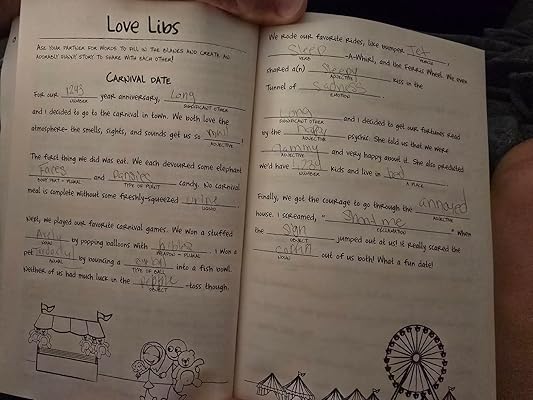 Love Libs
ASK YOUR PARTNER FOR WORDS TO FILL IN THE BLANKS AND CREATE AN
ADORABLY FUNNY STORY TO SHARE WITH EACH OTHER!
CARNIVAL DATE
For our 1293 year anniversary, Long
NUMBER SIGNIFICANT OTHER
and I decided to go to the carnival in town. We both love the
atmosphere- the smells, sights, and sounds get us so
ADJECTIVE
The first thing we did was eat. We each devoured some elephant
Faces and candy. No carnival
BODY PART - PLURAL TYPE OF FRUIT
meal is complete without some freshly-squeezed urine
LIQUID
Next, we played our favorite carnival games. We won a stuffed
by popping balloons with . I won a
NOUN WEAPON - PLURAL
pet by bouncing a into a fish bowl.
ANIMAL TYPE OF BALL
Neither of us had much luck in the -toss though.
OBJECT
We rode our favorite rides, like bumper Jet
VEHICLE
Sleep -A-Whirl, and the Ferris Wheel. We even
VERB
shared a(n) Sleepy kiss in the
ADJECTIVE
Tunnel of Sadness
EMOTION
Long and I decided to get our fortunes read
SIGNIFICANT OTHER
by the psychic. She told us that we were
ADJECTIVE
and very happy about it. She also predicted
ADJECTIVE
we'd have kids and live in bed
NUMBER A PLACE
Finally, we got the courage to go through the annoyed
ADJECTIVE
house. I screamed, " " when
EXCLAMATION
the sign jumped out at us! It really scared the
OBJECT
out of us both! What a fun date!
NOUN